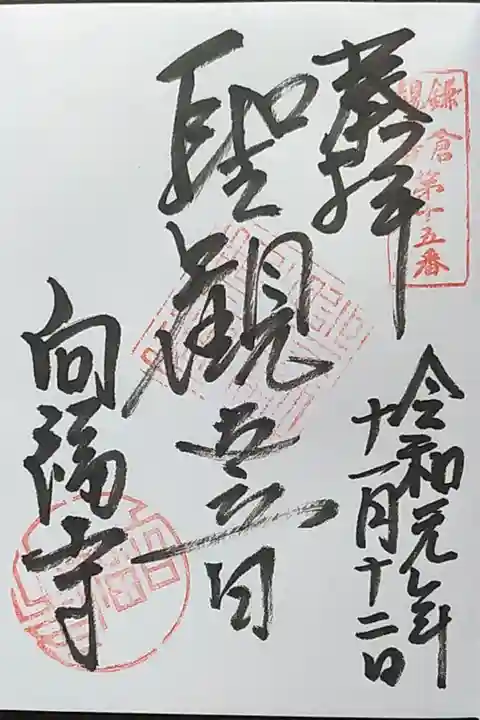 鎌倉
観音第十五番
奉拝
令和元年
十一月十二日
聖観世音
向福寺